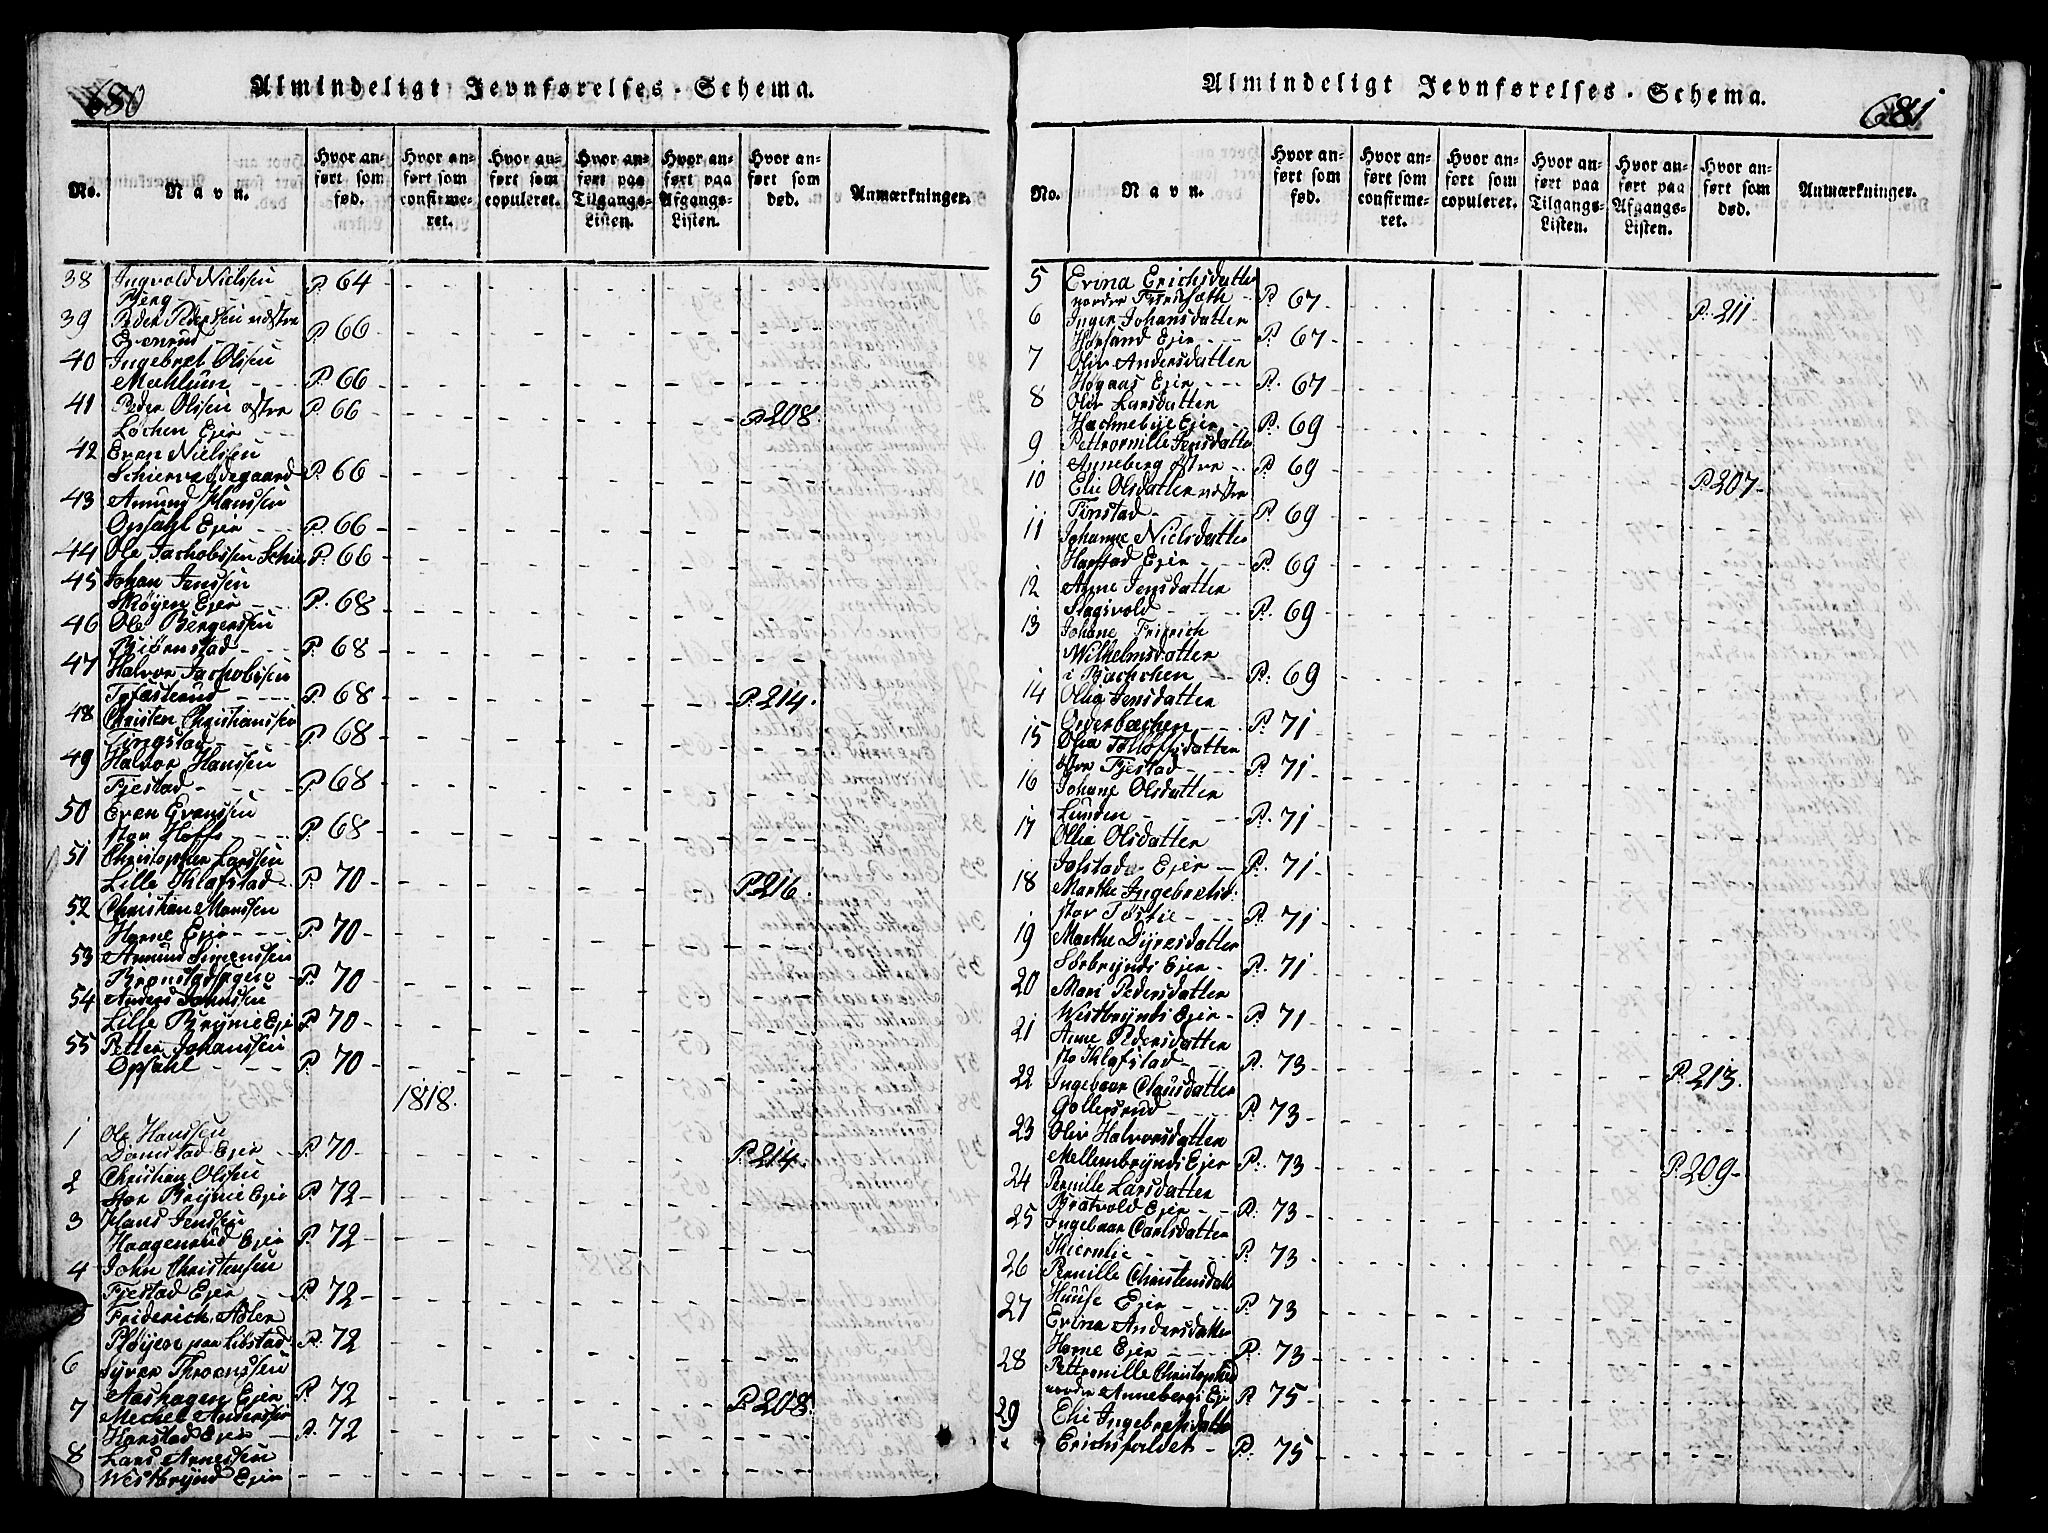 680
Almindeligt Jevnførelses-Schema.
No.
Navn.
Hvor anført som fød.
Hvor anført som confirmeret.
Hvor anført som copuleret.
Hvor anført paa Tilgangs-Listen.
Hvor anført paa Afgangs-Listen.
Hvor anført som død.
Anmærkninger.
38 Ingvold Nielssen
Berg P. 64
39 Peder Pederssen vestre
Evenrud P. 66
40 Ingebret Olssen
Mæhlum P. 66
41 Peder Olssen østre P. 66 P. 208.
Løchen Ejer
42 Even Nielssen
Schierveødegaard P. 66
43 Amund Hanssen
Opsahl Ejer P. 66
44 Ole Jachobssen Schie P. 66
45 Johan Jenssen
Skøyen Ejer P. 68
46 Ole Bergerssen
Biørnstad P. 68
47 Halvor Jachobssen
Tofastrud P. 68 P. 214.
48 Christen Christianssen
Tingstad P. 68
49 Halvor Hanssen
Fjestad P. 68
50 Even Evenssen
stor Hoff P. 68
51 Christopher Larssen
Lille Kløfstad P. 70 P. 216.
52 Christian Monssen
Horne Ejer P. 70
53 Amund Simenssen
Brønstadhagen P. 70
54 Anders Johnssen
Lille Brynie Eje P. 70
55 Petter Johanssen
Opsahl P. 70
1818.
1 Ole Hanssen
Dømstad Ejer P. 70 P. 214.
2 Christian Olssen
stor Brynie Ejer P. 72
3 Hans Jenssen
Haagenrud Ejer P. 72
4 John Christenssen
Fjestad Ejer P. 72
5 Friderich Adler
Pløyen paa Libstad P. 72
6 Syver Thronssen
Aashagen Ejer P. 72 P. 208.
7 Mechel Anderssen
Harstad Ejer P. 72
8 Lars Arnessen
Westbrynd Ejer
681
Almindeligt Jevnførelses-Schema.
No.
Navn.
Hvor anført som fød.
Hvor anført som confirmeret.
Hvor anført som copuleret.
Hvor anført paa Tilgangs-Listen.
Hvor anført paa Afgangs-Listen.
Hvor anført som død.
Anmærkninger.
5 Evina Erichsdatter
nordre P. 67 P. 211
6 Inger Johansdatter
Hørsand Ejer P. 67
7 Oliv Andersdatter
Høgaas Ejer P. 67
8 Oliv Larsdatter
Hachnebye Ejer P. 69
9 Pettronille Jensdatter
Anneberg østre P. 69
10 Elie Olsdatter vestre P. 207
Finstad P. 69
11 Johanne Nielsdatter
Harstad Ejer P. 69
12 Anne Jensdatter
Slagsvold P. 69
13 Johane Fridrich
Wilhelmsdatter
i Bachchen P. 69
14 Olea Jensdatter
Onderbachen P. 71
15 Olia Tolloffsdatter
østre Fjestad P. 71
16 Johane Olsdatter
Lunden P. 71
17 Ollia Olsdatter
Jolstad Ejer P. 71
18 Marthe Ingebretsd:
stor Tøstie P. 71
19 Marthe Dyresdatter
Sørbrynds Ejer P. 71
20 Mari Pedersdatter
Westbrynds Ejer P. 71
21 Anne Pedersdatter
sto Kløfstad P. 73 P. 213.
22 Ingebaar Clausdatter
Gollersrud P. 73
23 Oliv Halvorsdatter
Mellembrynds Ejer P. 73 P. 209
24 Pernille Larsdatter
Bratvold Ejer P. 73
25 Ingebaar Carlsdatter
Kiernlie P. 73
26 Pernille Christensdatt
Huuse Ejer P. 73
27 Evina Andersdatter
Horne Ejer P. 73
28 Pettronille Christophed
nordre Annebergs Eje P. 75
29 Elie Ingebretsdatter
Erichsfaldet P. 75